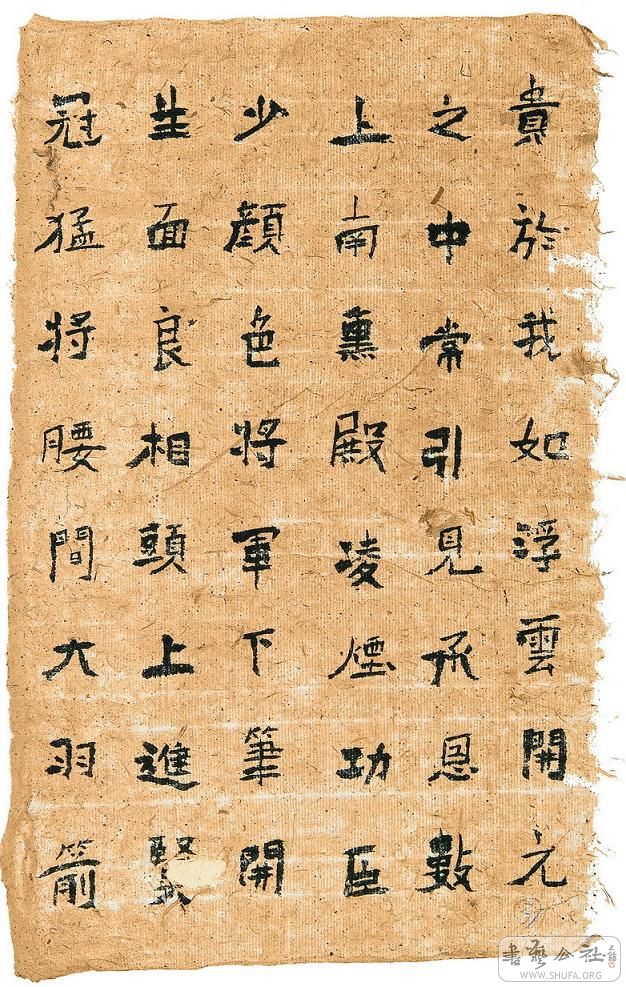 貴於我如浮雲開元
之中常引見承恩數
上南熏殿凌煙功臣
少顏色將軍下筆開
生面良相頭上進賢
冠猛將腰間大羽箭
書藝公社
WWW.SHUFA.ORG